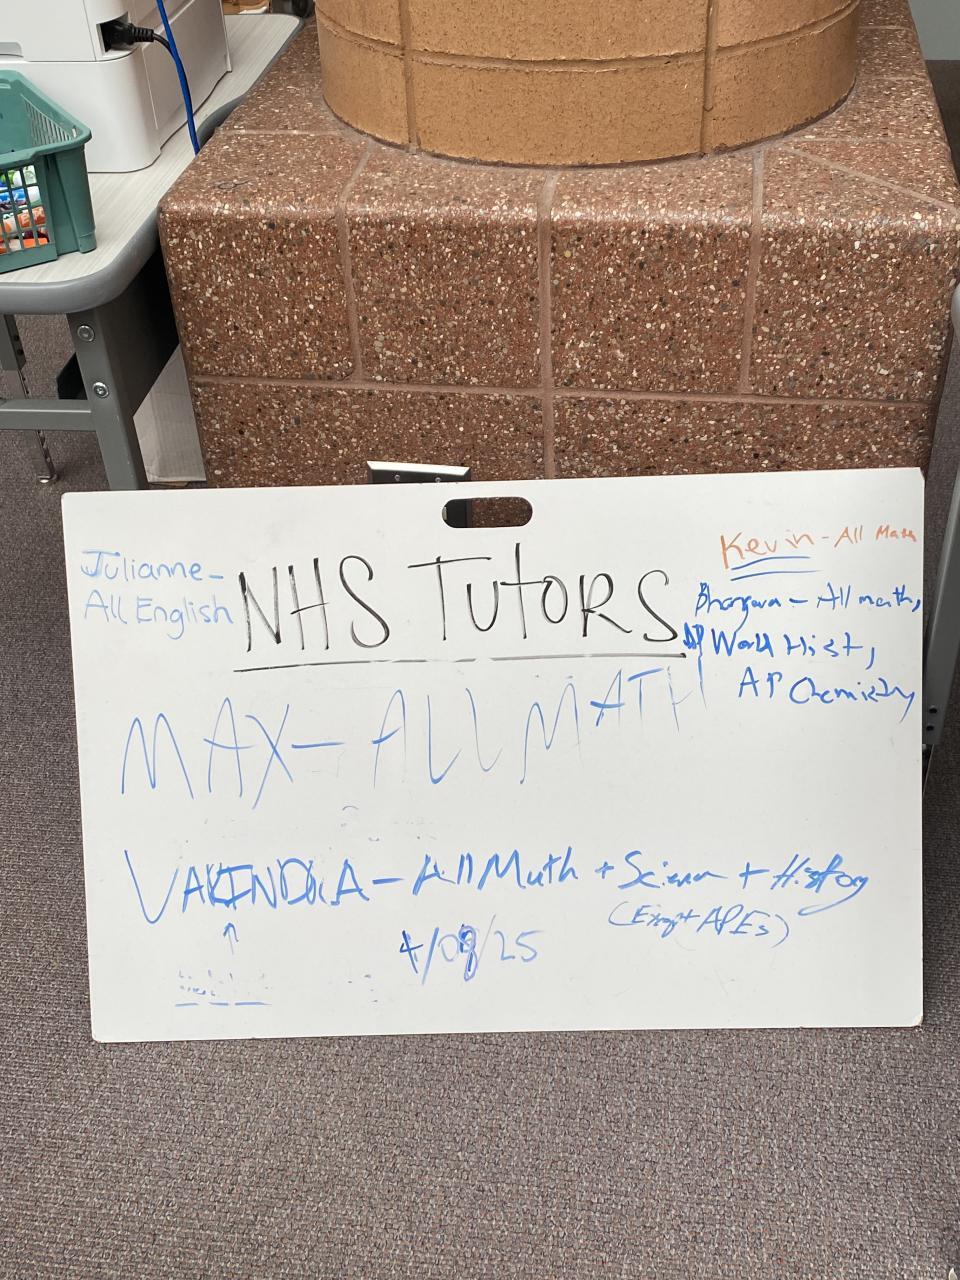 Julianne-
All English
NHS TUTORS
Kevin - All Math
Bhargava - All math,
AP World Hist,
AP Chemistry
MAX - ALL MATH
- All Math + Science + History
(Except APES)
4/09/25